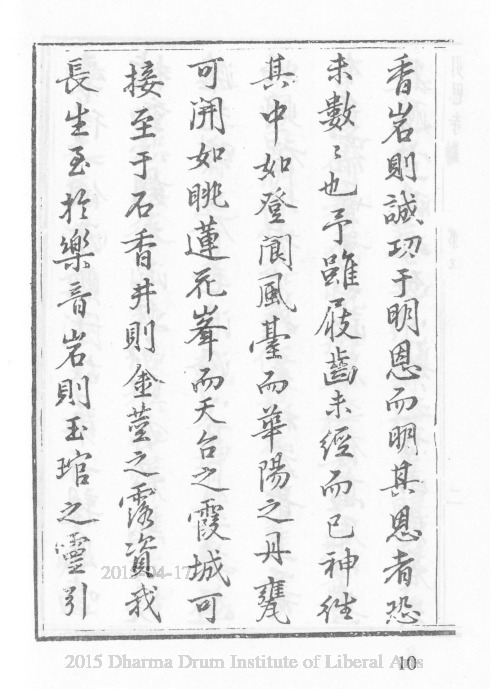 香岩則誠功于明恩而明其恩者恐
未數〻也予雖屐齒未經而已神往
其中如登閬風臺而華陽之丹竈
可開如眺蓮花峯而天台之霞城可
接至于石香井則金莖之露資我
長生至於樂音岩則玉琯之靈引
2015-04-17
2015 Dharma Drum Institute of Liberal Arts
10